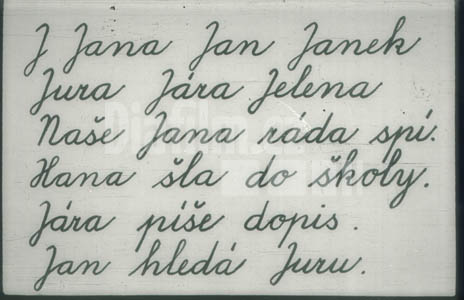 J Jana Jan Janek
Jura Jára Jelena
Naše Jana ráda spí.
Hana šla do školy.
Jára píše dopis.
Jan hledá Juru.